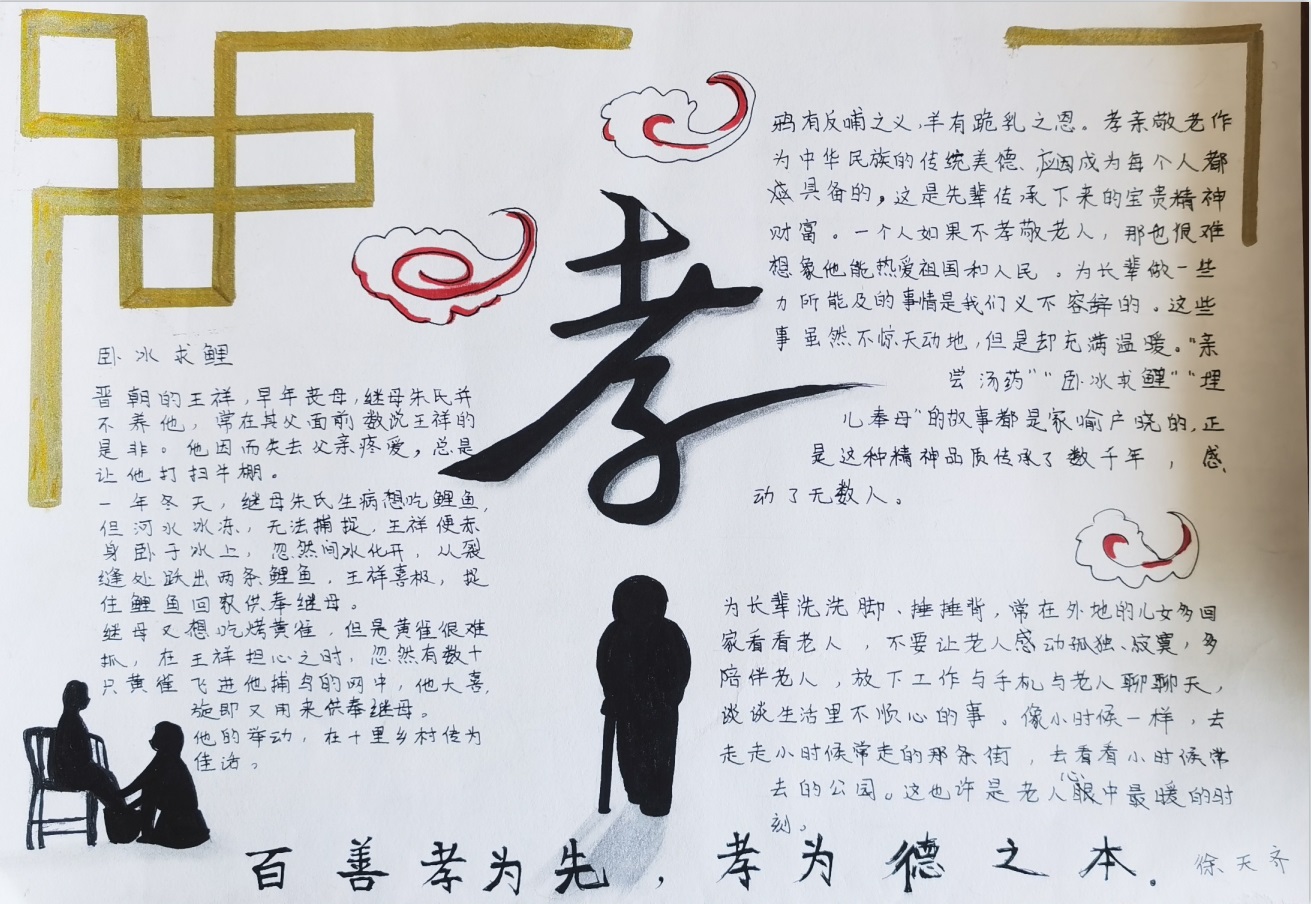 孝
卧冰求鲤
晋朝的王祥，早年丧母，继母朱氏并
不养他，常在其父面前数说王祥的
是非。他因而失去父亲疼爱，总是
让他打扫牛棚。
一年冬天，继母朱氏生病想吃鲤鱼，
但河水冰冻，无法捕捉，王祥便赤
身卧于冰上，忽然间冰化开，从裂
缝处跃出两条鲤鱼，王祥喜极，捉
住鲤鱼回家供奉继母。
继母又想吃烤黄雀，但是黄雀很难
抓，在王祥担心之时，忽然有数十
只黄雀飞进他捕鸟的网中，他大喜，
施即又用来供奉继母。
他的举动，在十里乡村传为
佳话。
鸦有反哺之义，羊有跪乳之恩。孝亲敬老作
为中华民族的传统美德、应因成为每个人都
具备的，这是先辈传承下来的宝贵精神
财富。一个人如果不孝敬老人，那也很难
想象他能热爱祖国和人民。为长辈做一些
力所能及的事情是我们义不容辞的。这些
事虽然不惊天动地，但是却充满温暖。"亲
尝汤药""卧冰求鲤""埋
儿奉母"的故事都是家喻户晓的，正
是这种精神品质传承了数千年，感
动了无数人。
为长辈洗洗脚、捶捶背，常在外地的儿女多回
家看看老人，不要让老人感动孤独、寂寞，多
陪伴老人，放下工作与手机与老人聊聊天，
谈谈生活里不顺心的事。像小时候一样，去
走走小时候常走的那条街，去看看小时候常
去的公园。这也许是老人心眼中最暖的时
刻。
百善孝为先，孝为德之本.
徐天齐